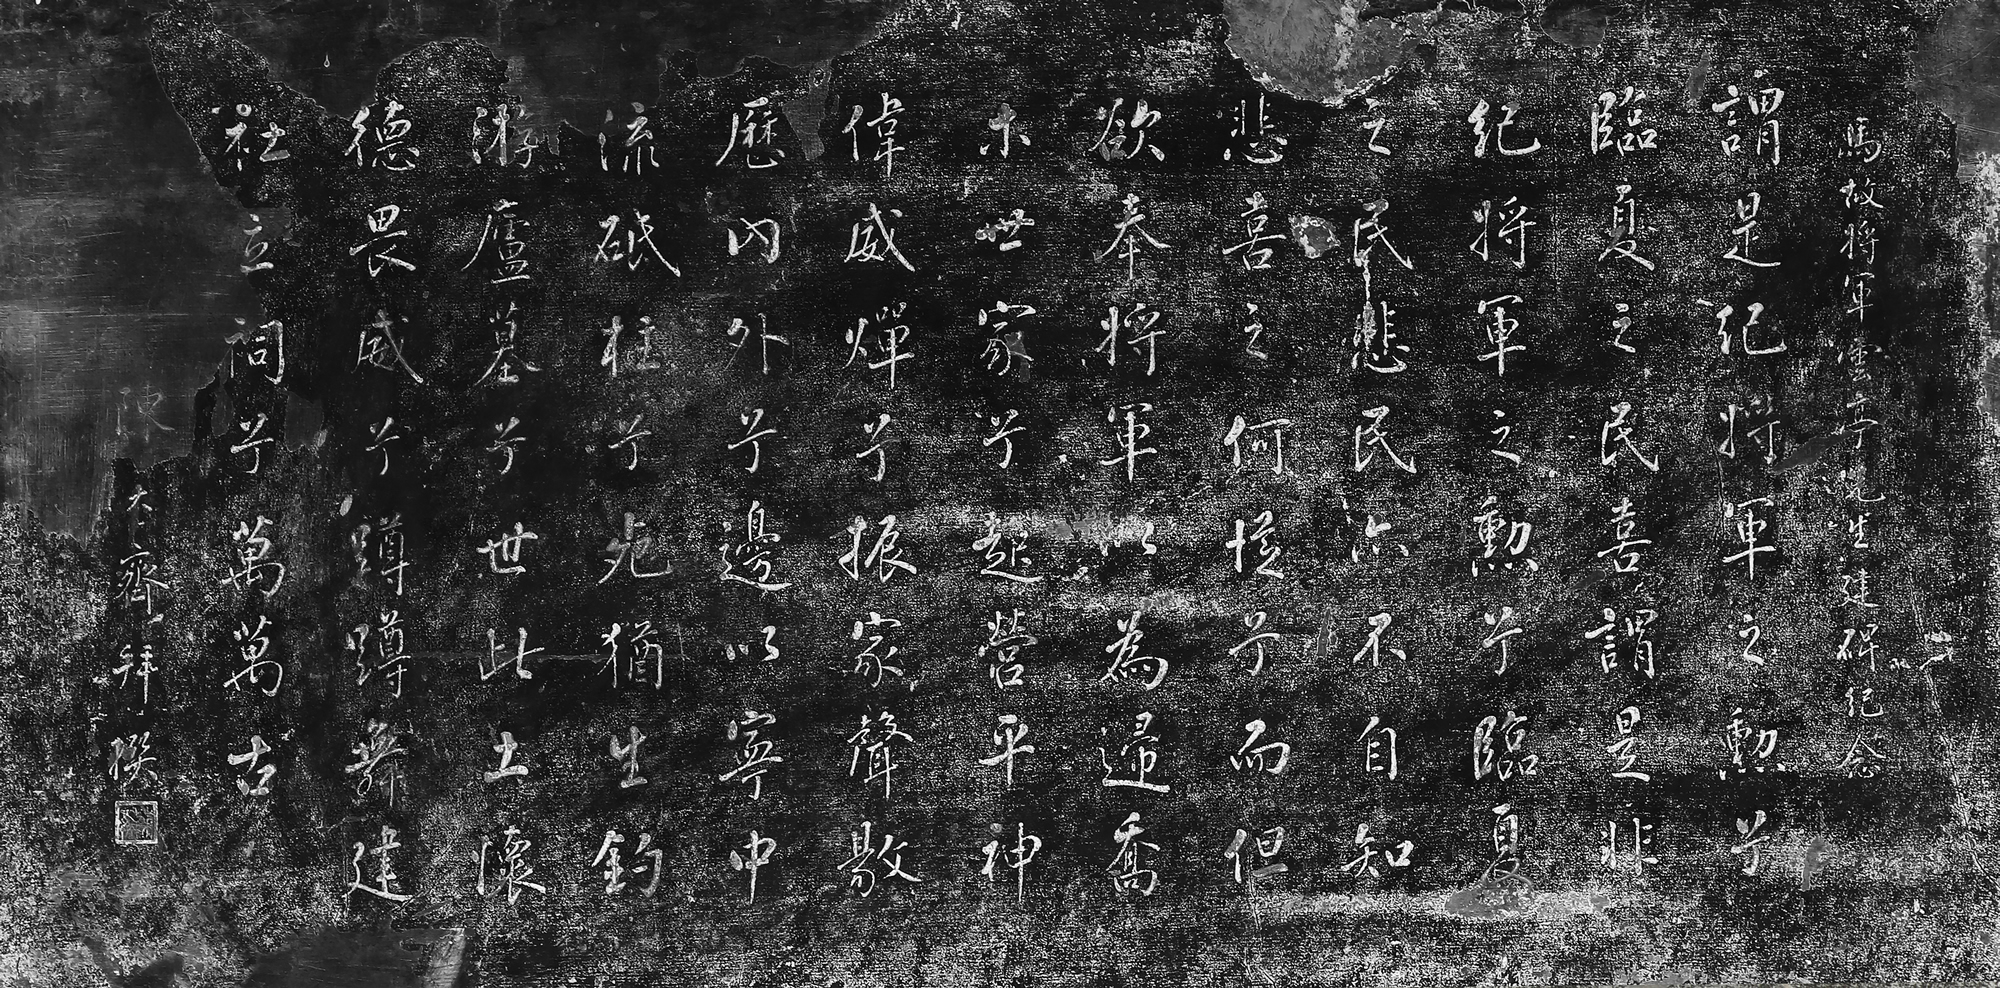 馬故將軍雲亭先生建碑紀念
謂是紀將軍之勳兮
臨夏之民喜謂是非
紀將軍之勳兮臨夏
之民悲民亦不自知
悲喜之何從兮而但
欲奉將軍以為歸喬
木世家兮起營平神
偉威燀兮振家聲敭
歷內外兮邊以寧中
流砥柱兮死猶生鈞
游廬墓兮世此土懷
德畏威兮蹲蹲舞建
社立祠兮萬萬古
大齊拜撰